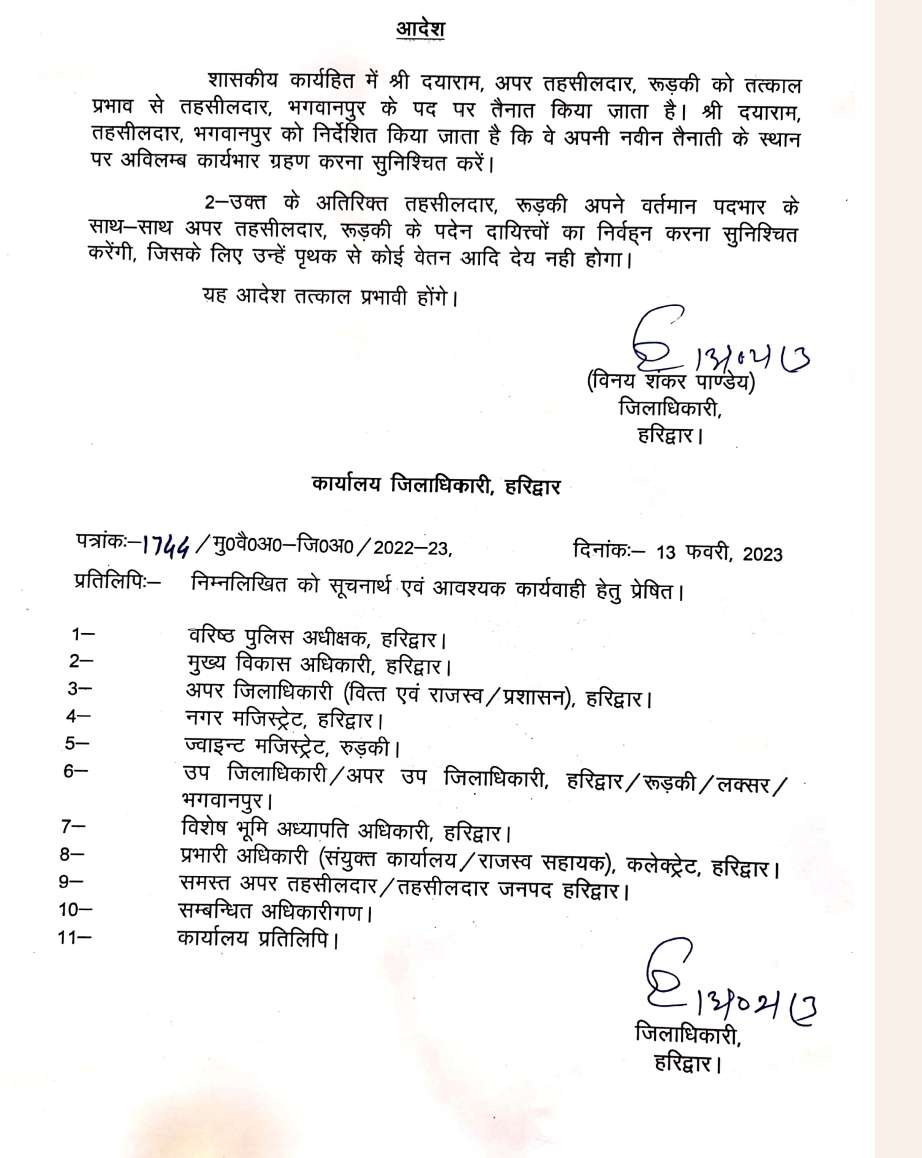 आदेश
शासकीय कार्यहित में श्री दयाराम, अपर तहसीलदार, रूड़की को तत्काल
प्रभाव से तहसीलदार, भगवानपुर के पद पर तैनात किया जाता है। श्री दयाराम,
तहसीलदार, भगवानपुर को निर्देशित किया जाता है कि वे अपनी नवीन तैनाती के स्थान
पर अविलम्ब कार्यभार ग्रहण करना सुनिश्चित करें।
2–उक्त के अतिरिक्त तहसीलदार, रूड़की अपने वर्तमान पदभार के
साथ–साथ अपर तहसीलदार, रूड़की के पदेन दायित्त्वों का निर्वहन करना सुनिश्चित
करेंगी, जिसके लिए उन्हें पृथक से कोई वेतन आदि देय नही होगा।
यह आदेश तत्काल प्रभावी होंगे।
(विनय शंकर पाण्डेय)
जिलाधिकारी,
हरिद्वार।
कार्यालय जिलाधिकारी, हरिद्वार
पत्रांकः–1744/मु0वै0अ0–जि0अ0/2022–23, दिनांकः– 13 फवरी, 2023
प्रतिलिपिः– निम्नलिखित को सूचनार्थ एवं आवश्यक कार्यवाही हेतु प्रेषित।
1– वरिष्ठ पुलिस अधीक्षक, हरिद्वार।
2– मुख्य विकास अधिकारी, हरिद्वार।
3– अपर जिलाधिकारी (वित्त एवं राजस्व/प्रशासन), हरिद्वार।
4– नगर मजिस्ट्रेट, हरिद्वार।
5– ज्वाइन्ट मजिस्ट्रेट, रुड़की।
6– उप जिलाधिकारी/अपर उप जिलाधिकारी, हरिद्वार/रूड़की/लक्सर/
भगवानपुर।
7– विशेष भूमि अध्यापति अधिकारी, हरिद्वार।
8– प्रभारी अधिकारी (संयुक्त कार्यालय/राजस्व सहायक), कलेक्ट्रेट, हरिद्वार।
9– समस्त अपर तहसीलदार/तहसीलदार जनपद हरिद्वार।
10– सम्बन्धित अधिकारीगण।
11– कार्यालय प्रतिलिपि।
जिलाधिकारी,
हरिद्वार।